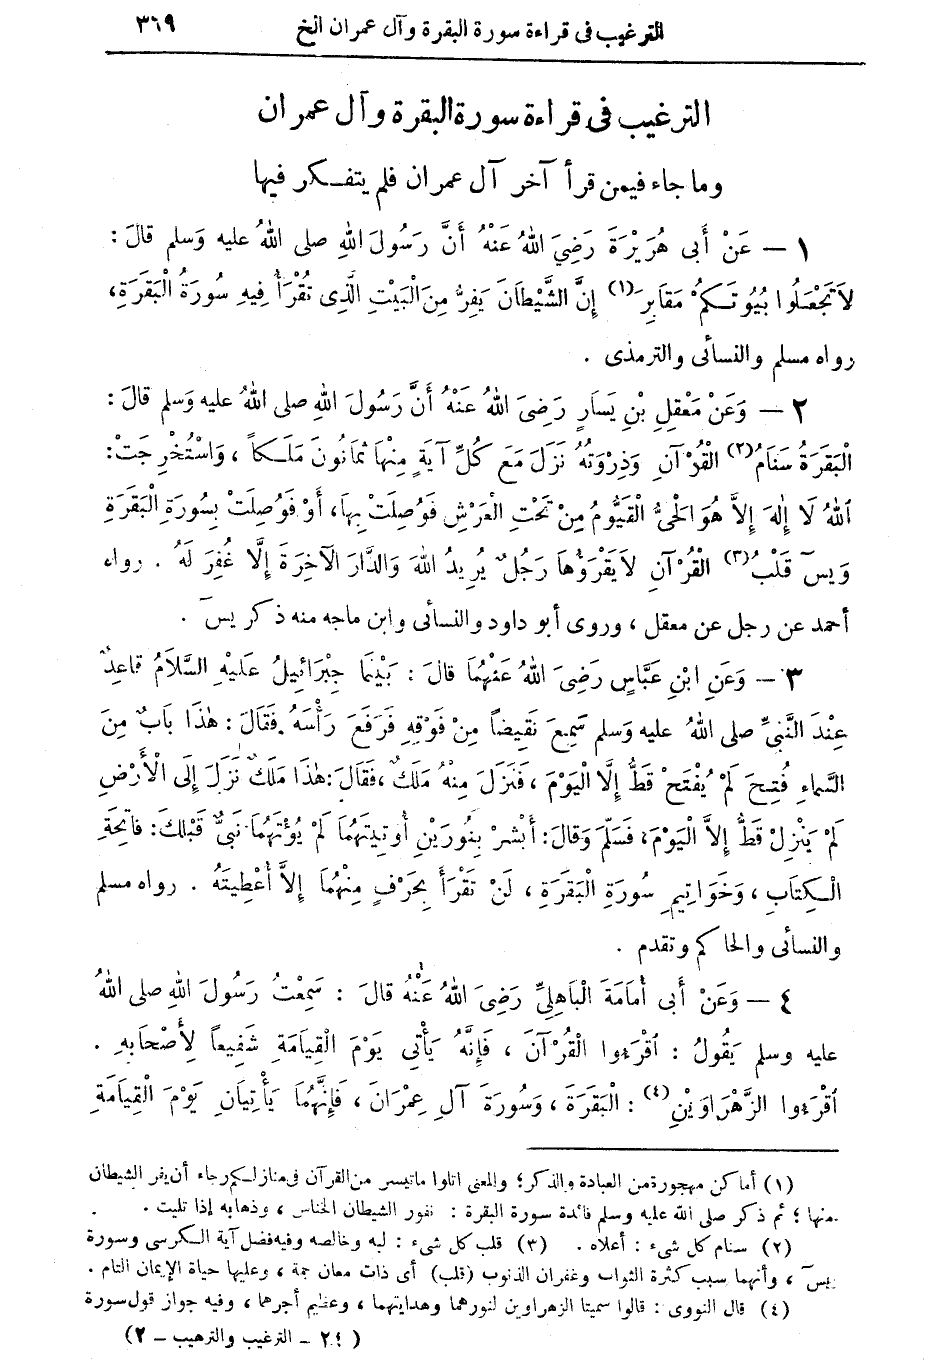 الترغيب فى قراءة سورة البقرة وآل عمران الخ ٣٦٩
الترغيب فى قراءة سورة البقرة وآل عمران
وما جاء فيمن قرأ آخر آل عمران فلم يتفكر فيها
١ — عَنْ أَبى هُرَيْرَةَ رَضِيَ اللهُ عَنْهُ أَنَّ رَسُولَ اللهِ صلى اللهُ عليه وَسلم قالَ :
لاَ تَجْعَلُوا بُيُوتَكُمْ مَقَابِرَ(١) إِنَّ الشَّيْطَانَ يَفِرُّ مِنَ الْبَيْتِ الَّذِى تُقْرَأُ فِيهِ سُورَةُ الْبَقَرَةِ،
رواه مسلم والنسائى والترمذى .
٢ — وَعَنْ مَعْقِلِ بْنِ يَسَارٍ رَضِىَ اللهُ عَنْهُ أَنَّ رَسُولَ اللهِ صلى اللهُ عليه وَسلم قالَ :
الْبَقَرَةُ سَنَامُ(٢) الْقُرْآنِ وَذِرْوَتُهُ نَزَلَ مَعَ كُلِّ آيَةٍ مِنْهَا ثَمَانُونَ مَلَكاً ، وَاسْتُخْرِجَتْ :
اَللهُ لَا إِلٰهَ إِلاَّ هُوَ الْحَىُّ الْقَيُّومُ مِنْ تَحْتِ الْعَرْشِ فَوُصِلَتْ بِهَا، أَوْ فَوُصِلَتْ بِسُورَةِ الْبَقَرَةِ
وَيسٓ قَلْبُ(٣) الْقُرْآنِ لاَ يَقْرَؤُهَا رَجُلٌ يُرِيدُ اللهَ وَالدَّارَ الآخِرَةَ إِلَّا غُفِرَ لَهُ . رواه
أحمد عن رجل عن معقل ، وروى أبو داود والنسائى وابن ماجه منه ذكر يسٓ .
٣ — وَعَنِ ابْنِ عَبَّاسٍ رَضِىَ اللهُ عَنْهُمَا قالَ : بَيْنَمَا جِبْرَائِيلُ عَلَيْهِ السَّلاَمُ قاعِدٌ
عِنْدَ النَّبِيِّ صلى اللهُ عليه وَسلم سَمِعَ نَقِيضاً مِنْ فَوْقِهِ فَرَفَعَ رَأْسَهُ فَقَالَ : هٰذَا بَابٌ مِنَ
السَّمَاءِ فُتِحَ لَمْ يُفْتَحْ قَطُّ إِلَّا الْيَوْمَ ، فَنَزَلَ مِنْهُ مَلَكٌ ، فَقَالَ : هٰذَا مَلَكٌ نَزَلَ إِلَى الْأَرْضِ
لَمْ يَنْزِلْ قَطُّ إِلاَّ الْيَوْمَ، فَسَلَّمَ وَقالَ : أَبْشِرْ بِنُورَيْنِ أُوتِيتَهُمَا لَمْ يُؤْتَهُمَا نَبِىٌّ قَبْلَكَ : فَاتِحَةِ
الْكِتَابِ ، وَخَوَاتِيمِ سُورَةِ الْبَقَرَةِ ، لَنْ تَقْرَأَ بِحَرْفٍ مِنْهُمَا إِلاَّ أُعْطِيتَهُ . رواه مسلم
والنسائى والحاكم وتقدم .
٤ — وَعَنْ أَبى أُمَامَةَ الْبَاهِلِيِّ رَضِىَ اللهُ عَنْهُ قالَ : سَمِعْتُ رَسُولَ اللهِ صلى اللهُ
عليه وسلم يَقُولُ : اقْرَءُوا الْقُرْآنَ ، فَإِنَّهُ يَأْتِى يَوْمَ الْقِيَامَةِ شَفِيعاً لِأَصْحَابِهِ .
اقْرَءُوا الزَّهْرَاوَيْنِ(٤) : الْبَقَرَةَ ، وَسُورَةَ آلِ عِمْرَانَ ، فَإِنَّهُمَا يَأْتِيَانِ يَوْمَ الْقِيَامَةِ
(١) أماكن مهجورة من العبادة والذكر؛ والمعنى اتلوا ما تيسر من القرآن فى منازلكم رجاء أن يفر الشيطان
منها ؛ ثم ذكر صلى الله عليه وسلم فائدة سورة البقرة : نفور الشيطان الخناس ، وذهابه إذا تليت .
(٢) سنام كل شىء : أعلاه . (٣) قلب كل شىء : لبه وخالصه وفيه فضل آية الكرسى وسورة
يسٓ ، وأنهما سبب كثرة الثواب وغفران الذنوب (قلب) أى ذات معان جمة ، وعليها حياة الإيمان التام .
(٤) قال النووى : قالوا سميتا الزهراوين لنورهما وهدايتهما ، وعظيم أجرهما ، وفيه جواز قول سورة
( ٢٤ – الترغيب والترهيب – ٢ )